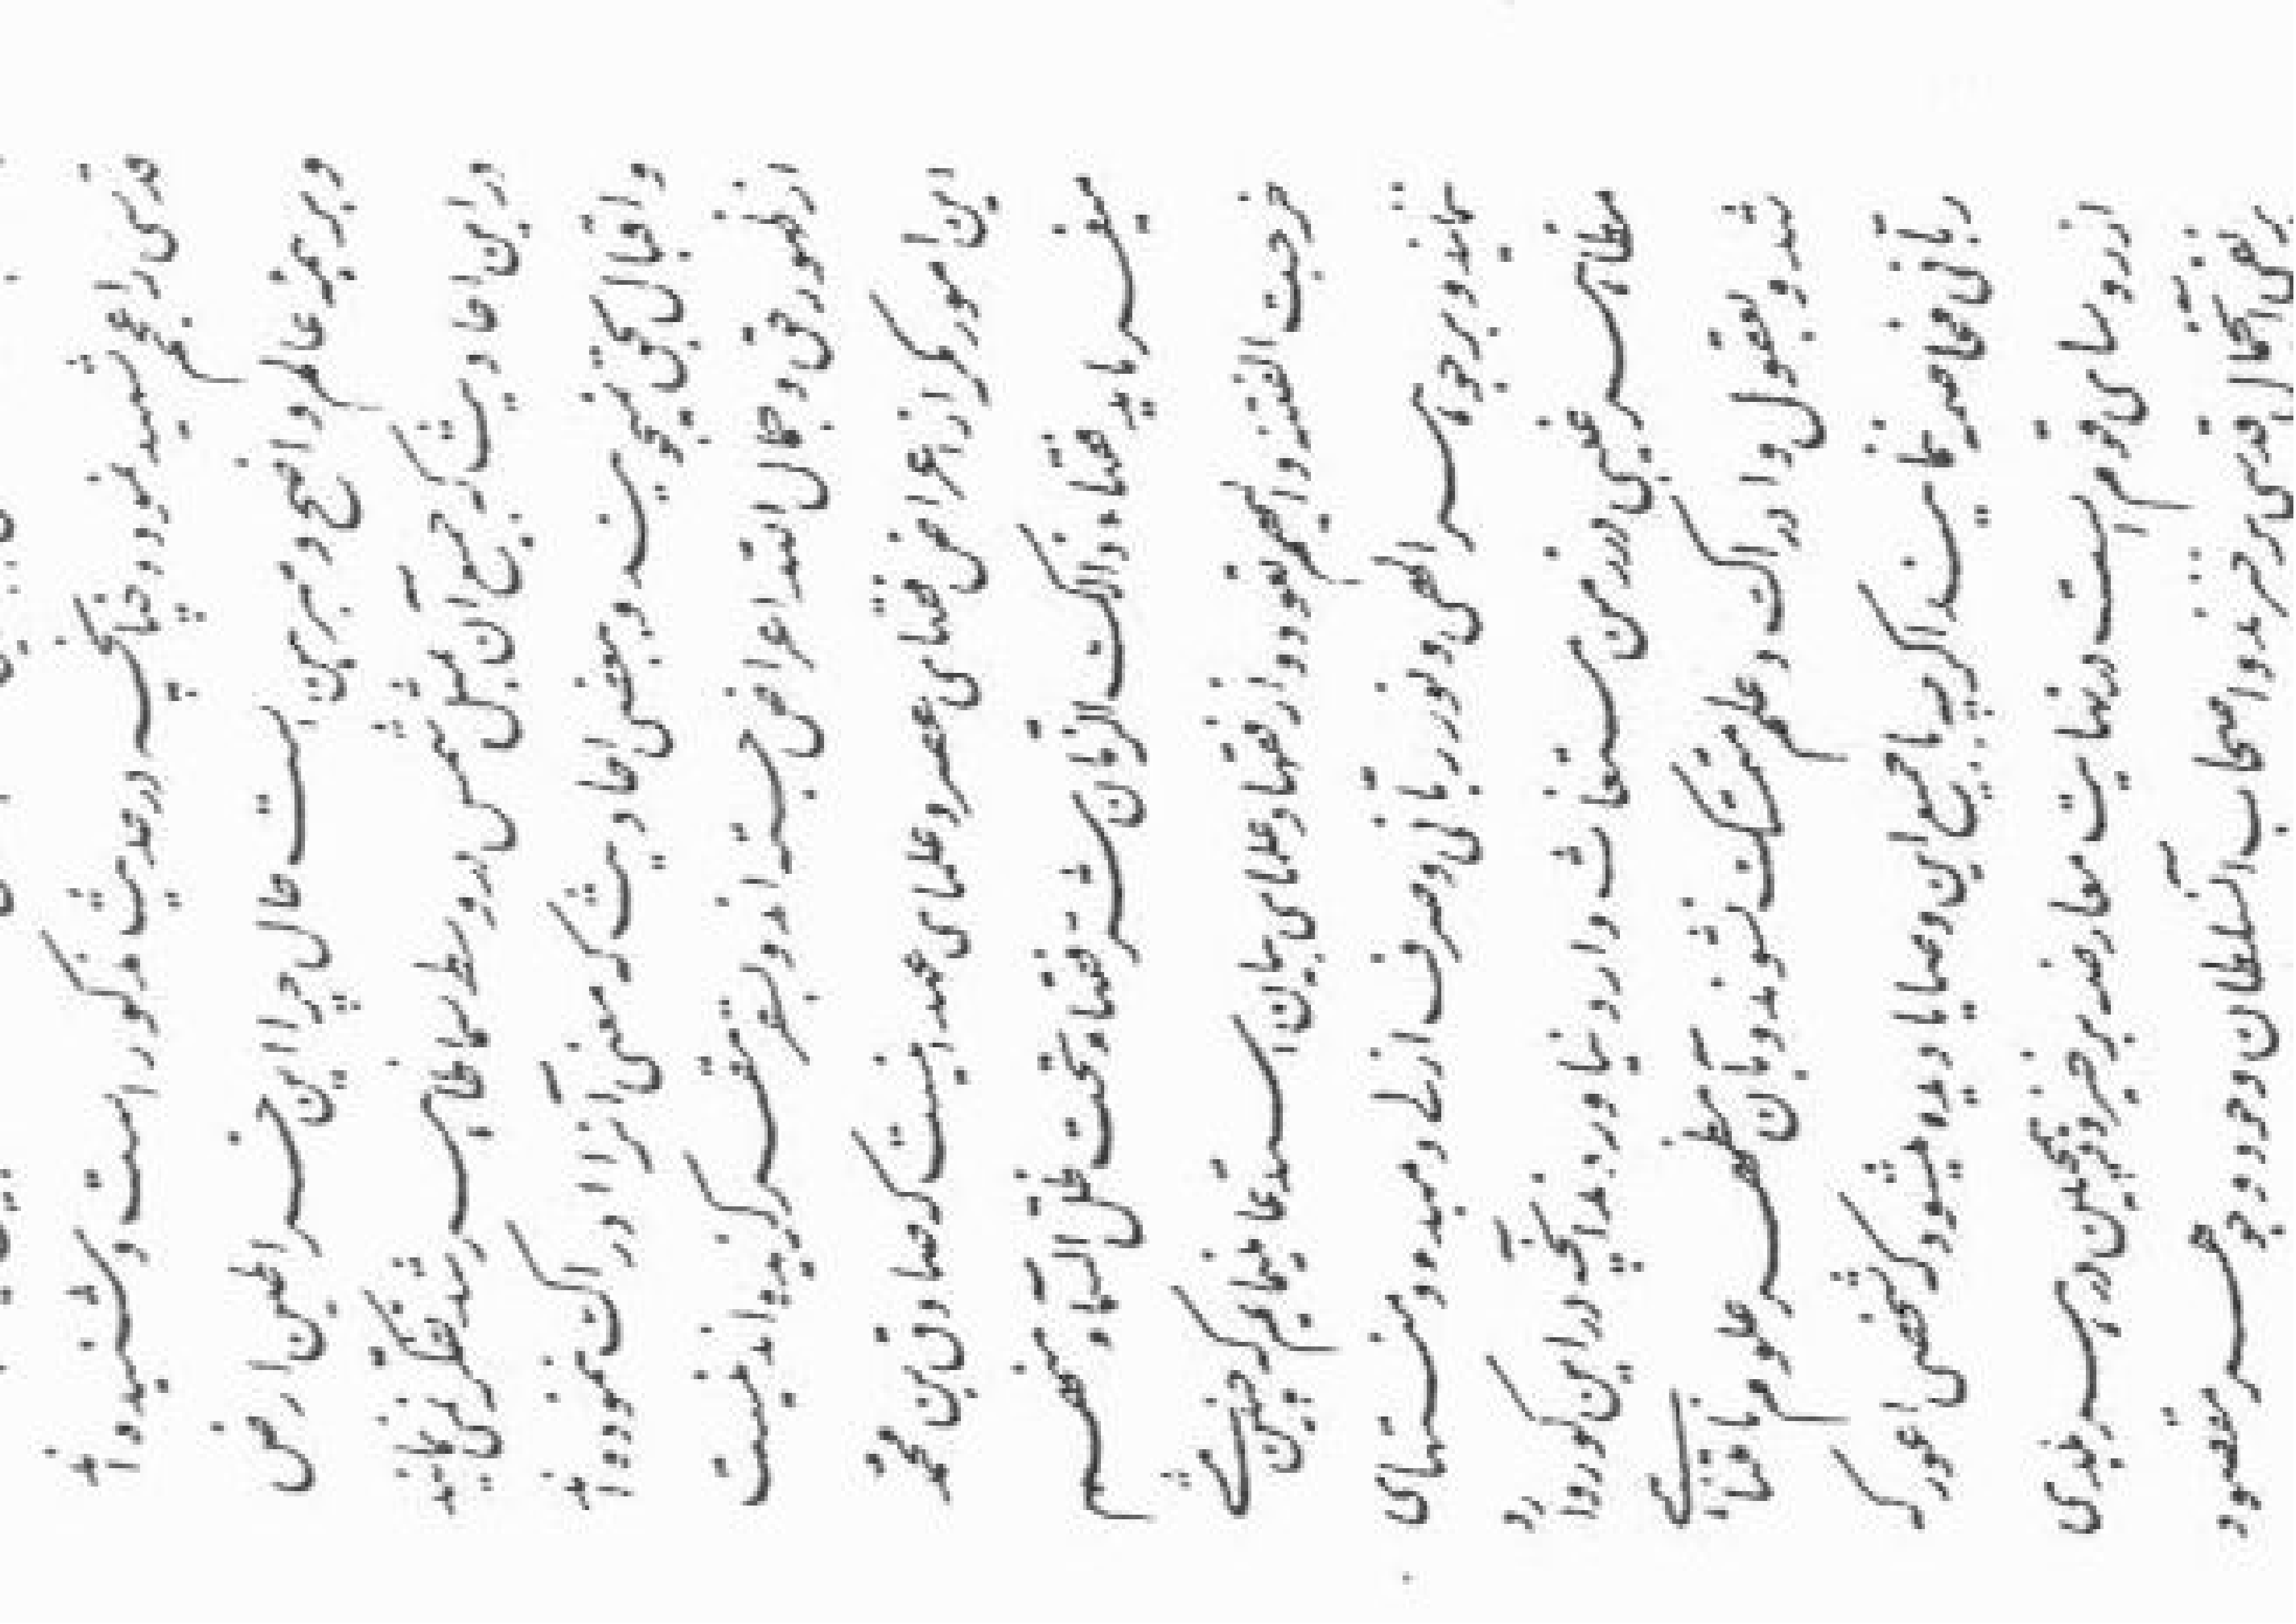 قدسی را هم تحدید نمود و چنانچه در حدیث مذکور است و شنیده‌اند
و بر همه عالم واضح و مبرهن است حال چرا این خراطین ارض
در این احادیث که جمیع آن بمثل شمس در وسط سماء ظاهر شد تفکر نمینمایند
و اقبال بحق نمیجویند و ببعضی احادیث که معنی آنرا ادراک ننموده‌اند
از ظهور حق و جمال الله اعراض جسته‌اند و بسقر مقر گزیده‌اند نیست
این امور مگر از اعراض فقهای عصر و علمای عهد اینست که صادق بن محمد
میفرماید فقهاء ذالک الزمان شر فقهاء تحت ظل السماء منهم
خرجت الفتنه و الیهم تعود و از فقها و علمای بیان استدعا مینمایم که چنین مشی
ننمایند و بر جوهر الهی و نور ربانی و صرف ازلی و مبدء و منتهای
مظاهر غیبی در زمن مستغاث وارد نیاورند آنچه در این کور وارد
شد و بعقول و ادراک و علم متمسک نشوند و بآن مظهر علوم نامتناهی
ربانی مخاصمه ننمایند اگرچه با جمیع این وصایا دیده میشود که شخصی اعور که
از رؤسای قوم است در نهایت معارضه برخیزد و همچنین در هر بلدی
بر نفی آن جمال قدسی برخیزند و اصحاب آن سلطان وجود و جوهر مقصود